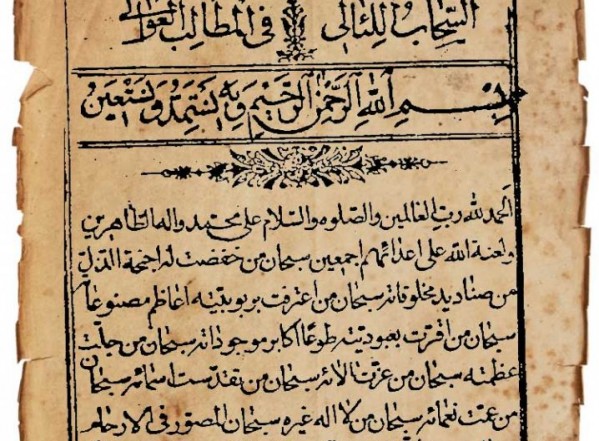 السحاب اللئالي في المطالب العوالي
بسم الله الرحمن الرحيم وبه نستمد ونستعين
الحمد لله رب العالمين والصلوه والسلام على محمد واله الطاهرين
ولعنة الله على اعدائهم اجمعين سبحان من خفضت له اجنحة الذل
من صناديد مخلوقاته سبحان من اعترفت بربوبيته اعاظم مصنوعا
سبحان من اقرت بعبوديته طوعا اكابر موجوداته سبحان من جلت
عظمته سبحان من عزت الائه سبحان من تقدست اسمائه سبحان
من عمت نعمائه سبحان من لا اله غيره سبحان المصور في الارحام